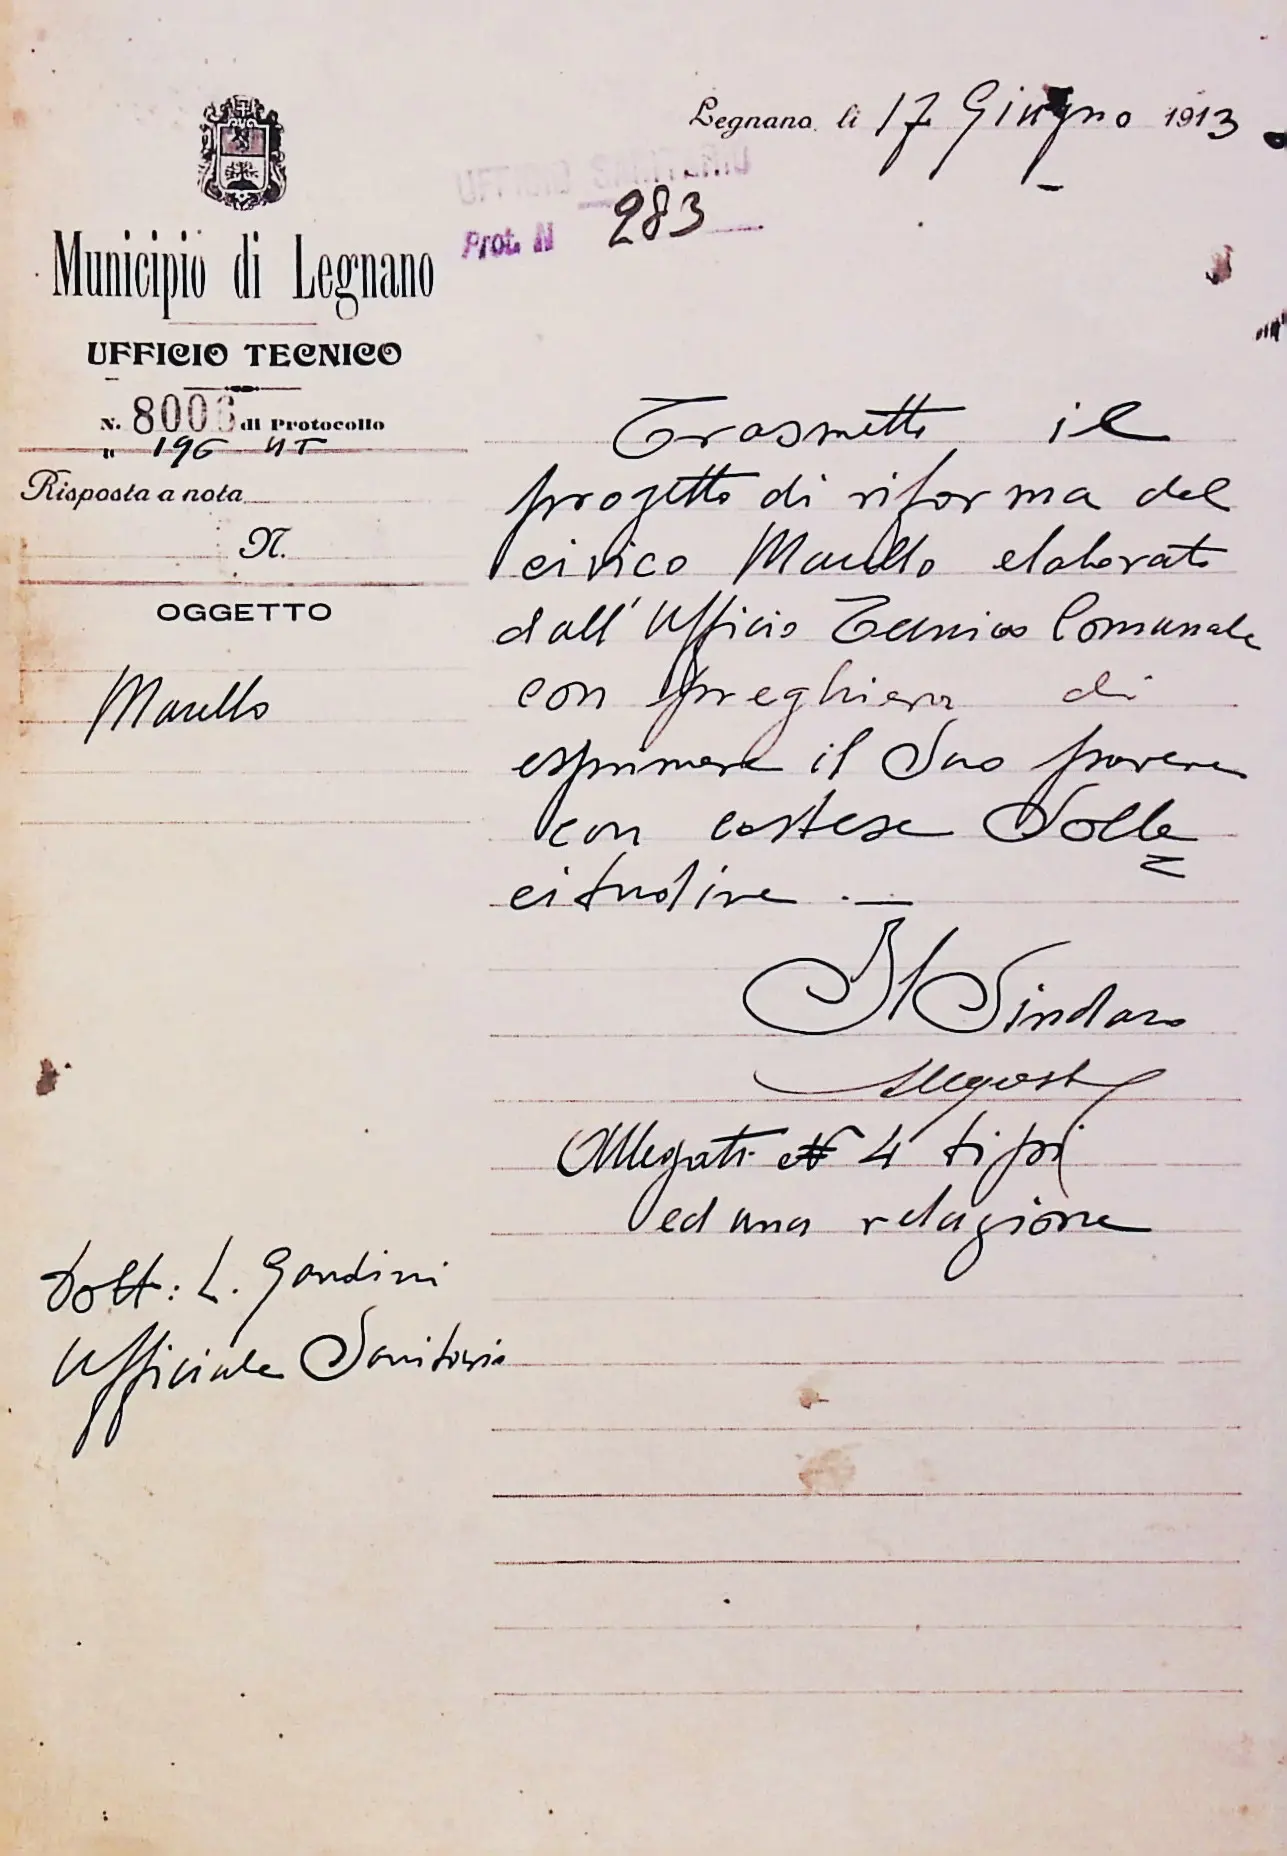 Legnano, li 17 Giugno 1913
UFFICIO SANITARIO
Prot. N 283
Municipio di Legnano
UFFICIO TECNICO
N. 8006 di Protocollo
" 196 UT
Risposta a nota
N.
OGGETTO
Macello
Trasmetto il
progetto di riforma del
civico Macello elaborato
dall'Ufficio Tecnico Comunale
con preghiera di
esprimere il Suo parere
con cortese Solle
citudine. —
Il Sindaco
Allegati N 4 tipi
ed una relazione
Dott: L. Gandini
Ufficiale Sanitario